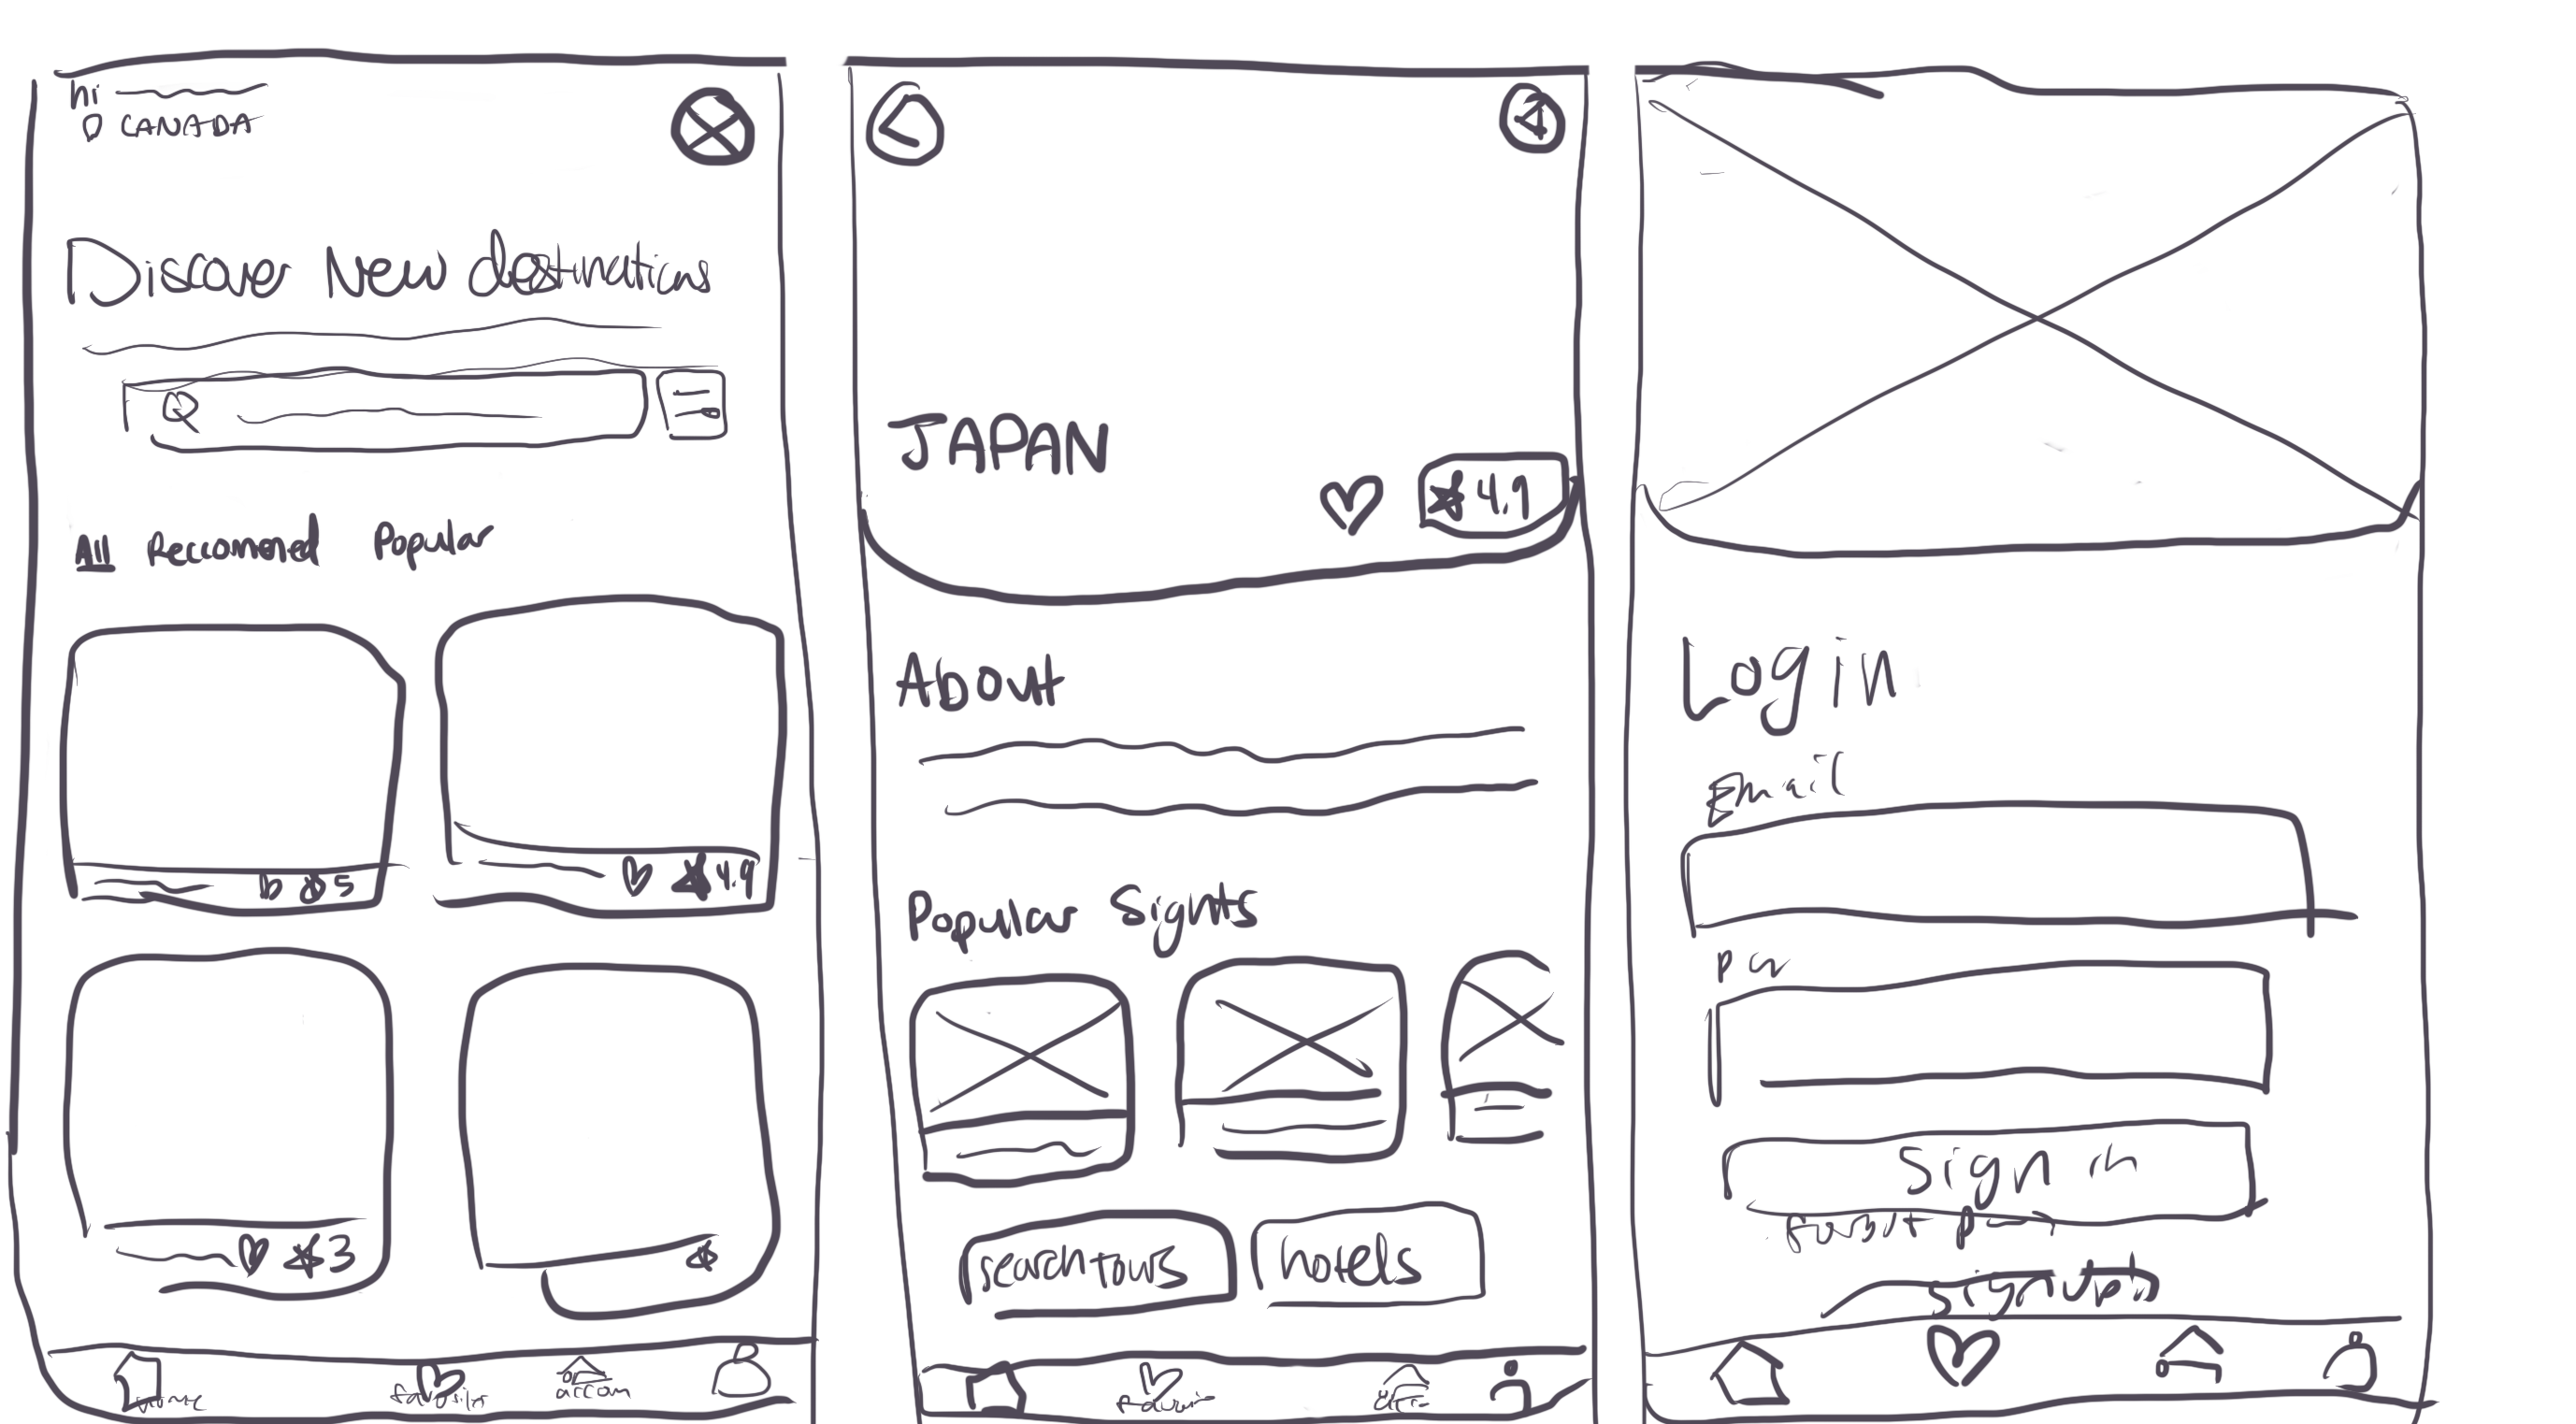 hi
CANADA
Discover New destinations
All Reccomened Popular
5
4.9
3
home
accom
JAPAN
4.9
About
Popular Sights
search tours
hotels
Login
Email
pw
Sign in
signup